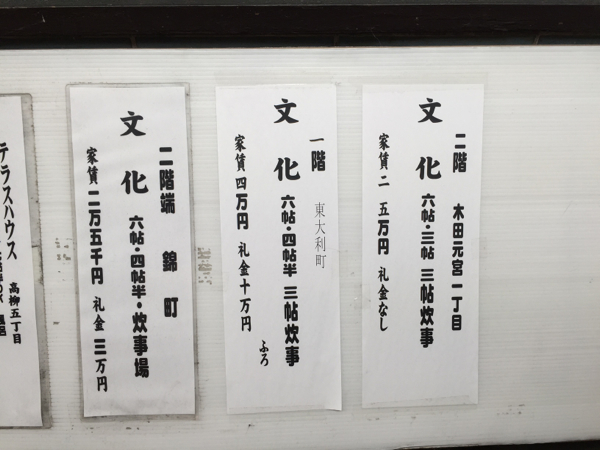 二階　木田元宮一丁目
文化　六帖・三帖　三帖炊事
家賃二　五万円　礼金なし
一階　東大利町
文化　六帖・四帖半　三帖炊事
ふろ
家賃四万円　礼金十万円
二階端　錦町
文化　六帖・四帖半・炊事場
家賃二万五千円　礼金三万円
テラスハウス　高柳五丁目